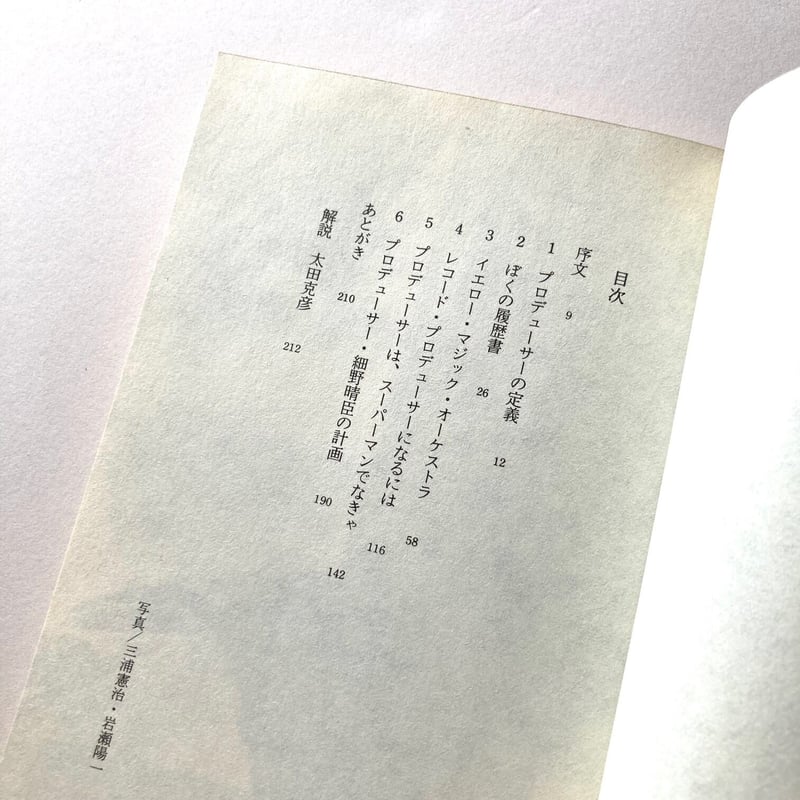 目次
序文 9
1 プロデューサーの定義 12
2 ぼくの履歴書 26
3 イエロー・マジック・オーケストラ 58
4 レコード・プロデューサーになるには 116
5 プロデューサーは、スーパーマンでなきゃ 142
6 プロデューサー・細野晴臣の計画 190
あとがき 210
解説 太田克彦 212
写真/三浦憲治・岩瀬陽一